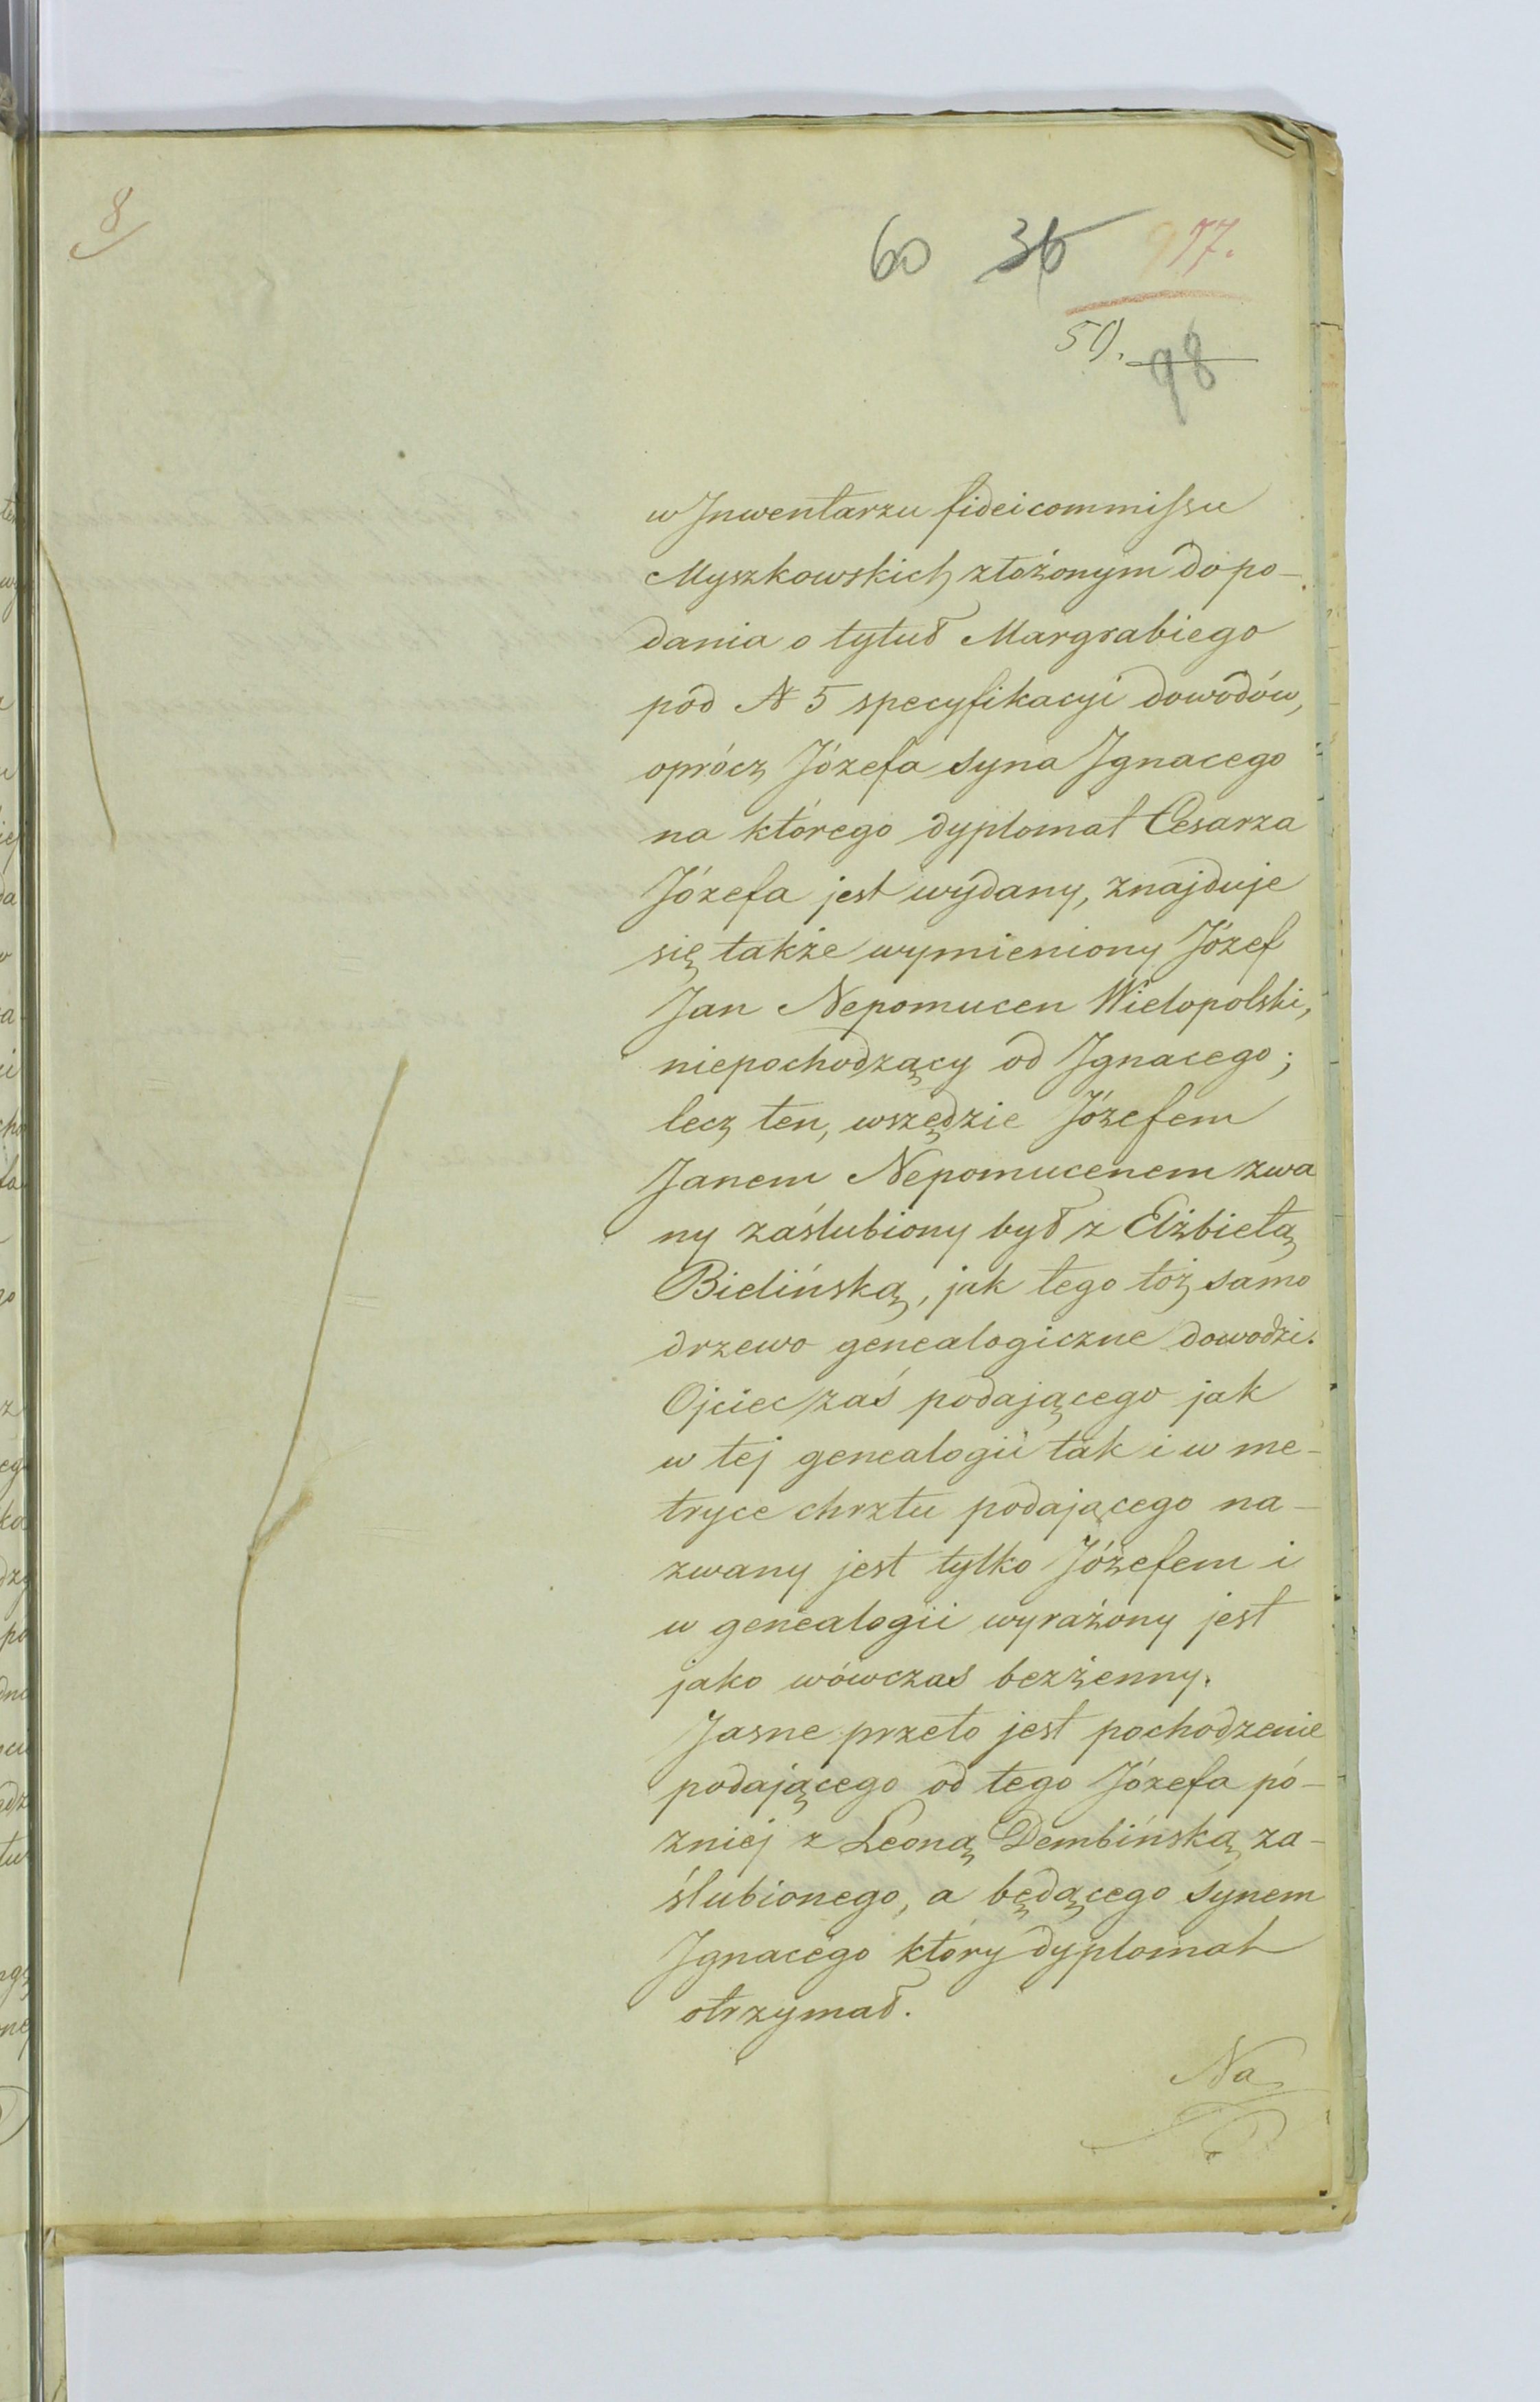 8
60 36 977.
59. 98
w Inwentarzu fideicommissu
Myszkowskich złożonym do po-
dania o tytuł Margrabiego
pod N 5 specyfikacyi dowodów,
oprócz Józefa syna Ignacego
na którego dyplomat Cesarza
Józefa jest wydany, znajduje
się także wymieniony Józef
Jan Nepomucen Wielopolski,
niepochodzący od Ignacego;
lecz ten, wszędzie Józefem
Janem Nepomucenem zwa
ny zaślubiony był z Elżbietą
Bielińską, jak tego toż samo
drzewo genealogiczne dowodzi.
Ojciec zaś podającego jak
w tej genealogii tak i w me-
tryce chrztu podającego na-
zwany jest tylko Józefem i
w genealogii wyrażony jest
jako wówczas bezżenny.
Jasne przeto jest pochodzenie
podającego od tego Józefa pó-
zniej z Leoną Dembińską za-
ślubionego, a będącego synem
Ignacego który dyplomat
otrzymał.
Na